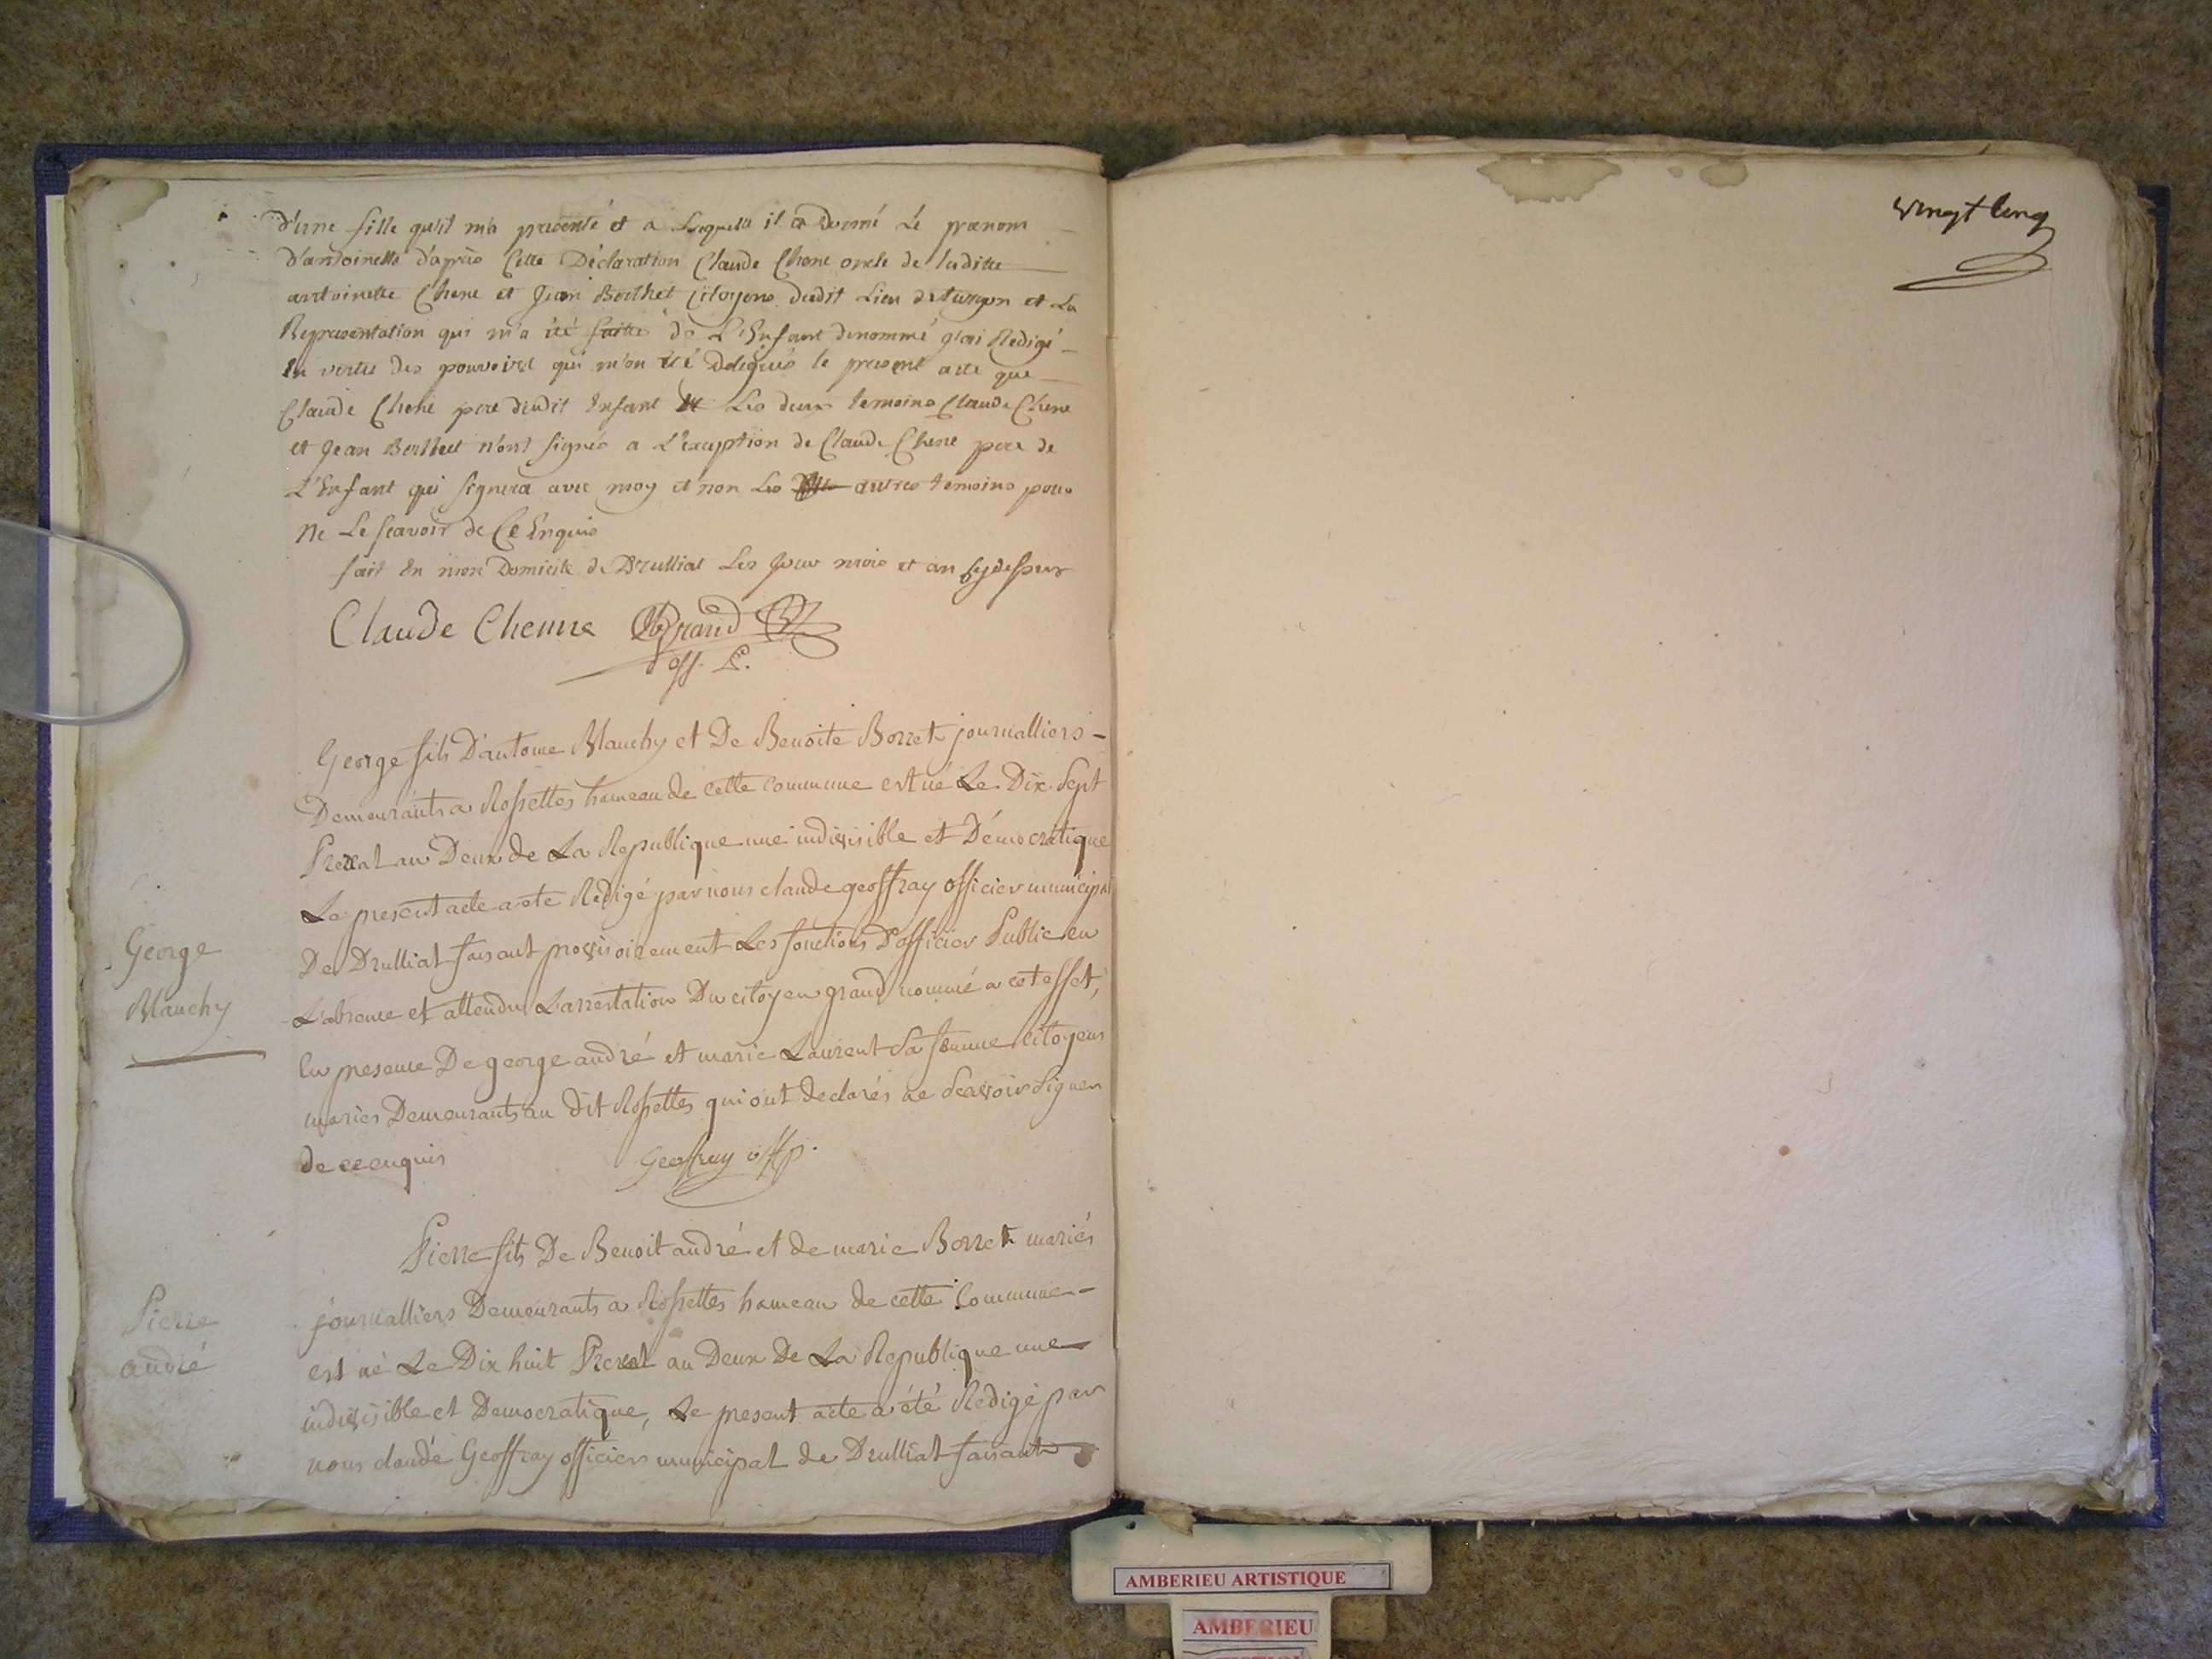 d'une fille qu'il m'a presenté et a Lequelle il a donné Le prenom
d'antoinette d'après Cette Déclaration Claude Chene oncle de laditte
antoinette Chene et Jean Berthet Citoyens dudit Lieu de turgon et La
Representation qui m'a été faitte de L'Enfant denommé j'ai Redigé
En vertu des pouvoirs qui m'on été Delegués le present acte que
Claude Chene pere dudit Enfant et Les deux temoins Claude Chene
et Jean Berthet n'ont signés a L'exception de Claude Chene pere de
L'Enfant qui signera avec moy et non Les autres temoins pour
Ne Le scavoir de Ce Enquis
fait En mon Domicile de Drulliat Les Jour mois et an cy dessus
Claude Chenne Grand
off. P.
George fils D'antoine Mauchy et De Benoite Borret journalliers -
Demeurants a Rossettes hameau de cette commune est né Le Dix Sept
Prereal an Deux de La Republique une indivisible et Démocratique
Le present acte a ete Rédigé par nous claude geoffray officier municipal
De Drulliat faisant provisoirement Les fonctions D'officier Public en
L'absence et attendu L'arrestation Du citoyen grand nommé a cet effet,
En presence De george andré et marie Laurent Sa femme Citoyens
mariés Demeurants au dit Rossettes qui ont declarés ne Scavoir Signer
de ce enquis Geoffray offp.
George
Mauchy
Pierre fils De Benoit andré et de marie Borret mariés
journalliers Demeurants a Rossettes hameau de cette Commune -
est né Le Dix huit Prereal an Deux De La Republique une
indivisible et Democratique, Le present acte a été Rédigé par
nous claude Geoffray officier municipal de Drulliat faisant
Pierre
andré
vingt Cinq
AMBERIEU ARTISTIQUE
AMBERIEU